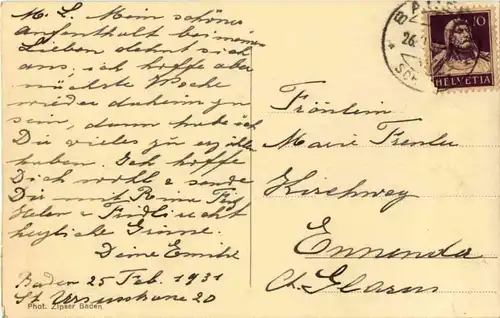 M. L. Mein schöner
Aufenthalt bei meinen
Lieben dehnt sich
aus, ich hoffe aber
nächste Woche
wieder daheim zu
sein, dann habe ich
Dir vieles zu erzählen
haben. Ich hoffe
Dich wohl & sende
Dir mit
Helen & Fridli recht
herzliche Grüsse.
Deine Emilie
Baden 25 Feb. 1931
St. 20
Phot. Zipser Baden
10
HELVETIA
Fräulein
Marie
Kirchweg
Ennenda
Ct. Glarus